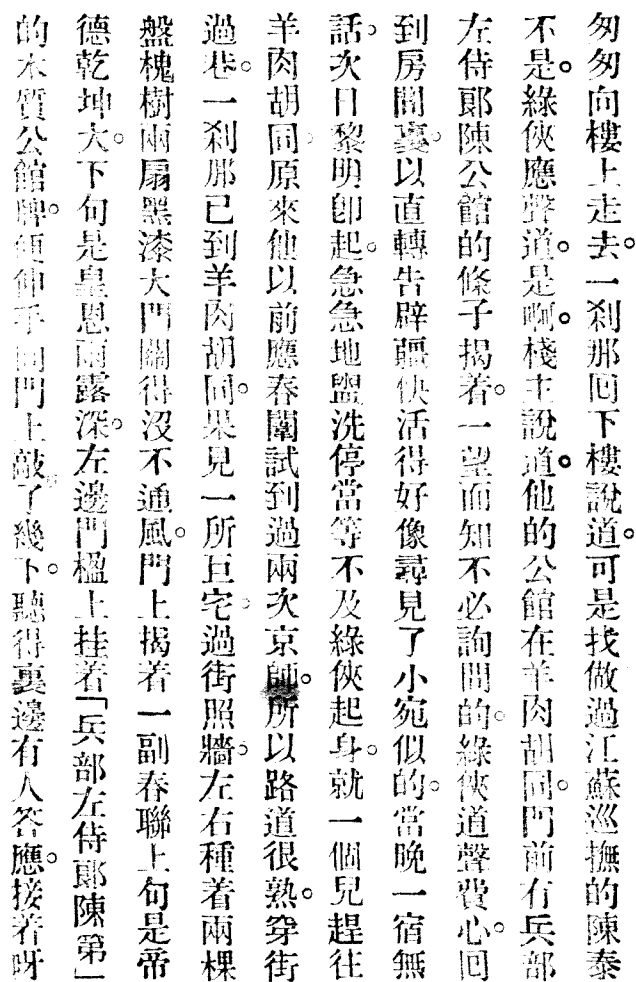 匆匆向樓上走去。一刹那囘下樓說道。可是找做過江蘇巡撫的陳泰
不是。綠俠應聲道。是啊。棧主說道。他的公館在羊肉胡同。門前有兵部
左侍郞陳公館的條子揭着。一望而知不必詢問的。綠俠道聲費心。囘
到房間裏。以直轉告辟疆。快活得好像尋見了小宛似的。當晚一宿無
話。次日黎明卽起。急急地盥洗停當等不及綠俠起身。就一個兒趕往
羊肉胡同。原來他以前應春闈試到過兩次京師。所以路道很熟。穿街
過巷。一刹那已到羊肉胡同。果見一所巨宅。過街照牆。左右種着兩棵
盤槐樹兩扇黑漆大門關得沒不通風。門上揭着一副春聯上句是帝
德乾坤大。下句是皇恩雨露深。左邊門楹上挂着「兵部左侍郞陳第」
的木質公館牌。便伸手向門上敲了幾下。聽得裏邊有人答應。接着呀